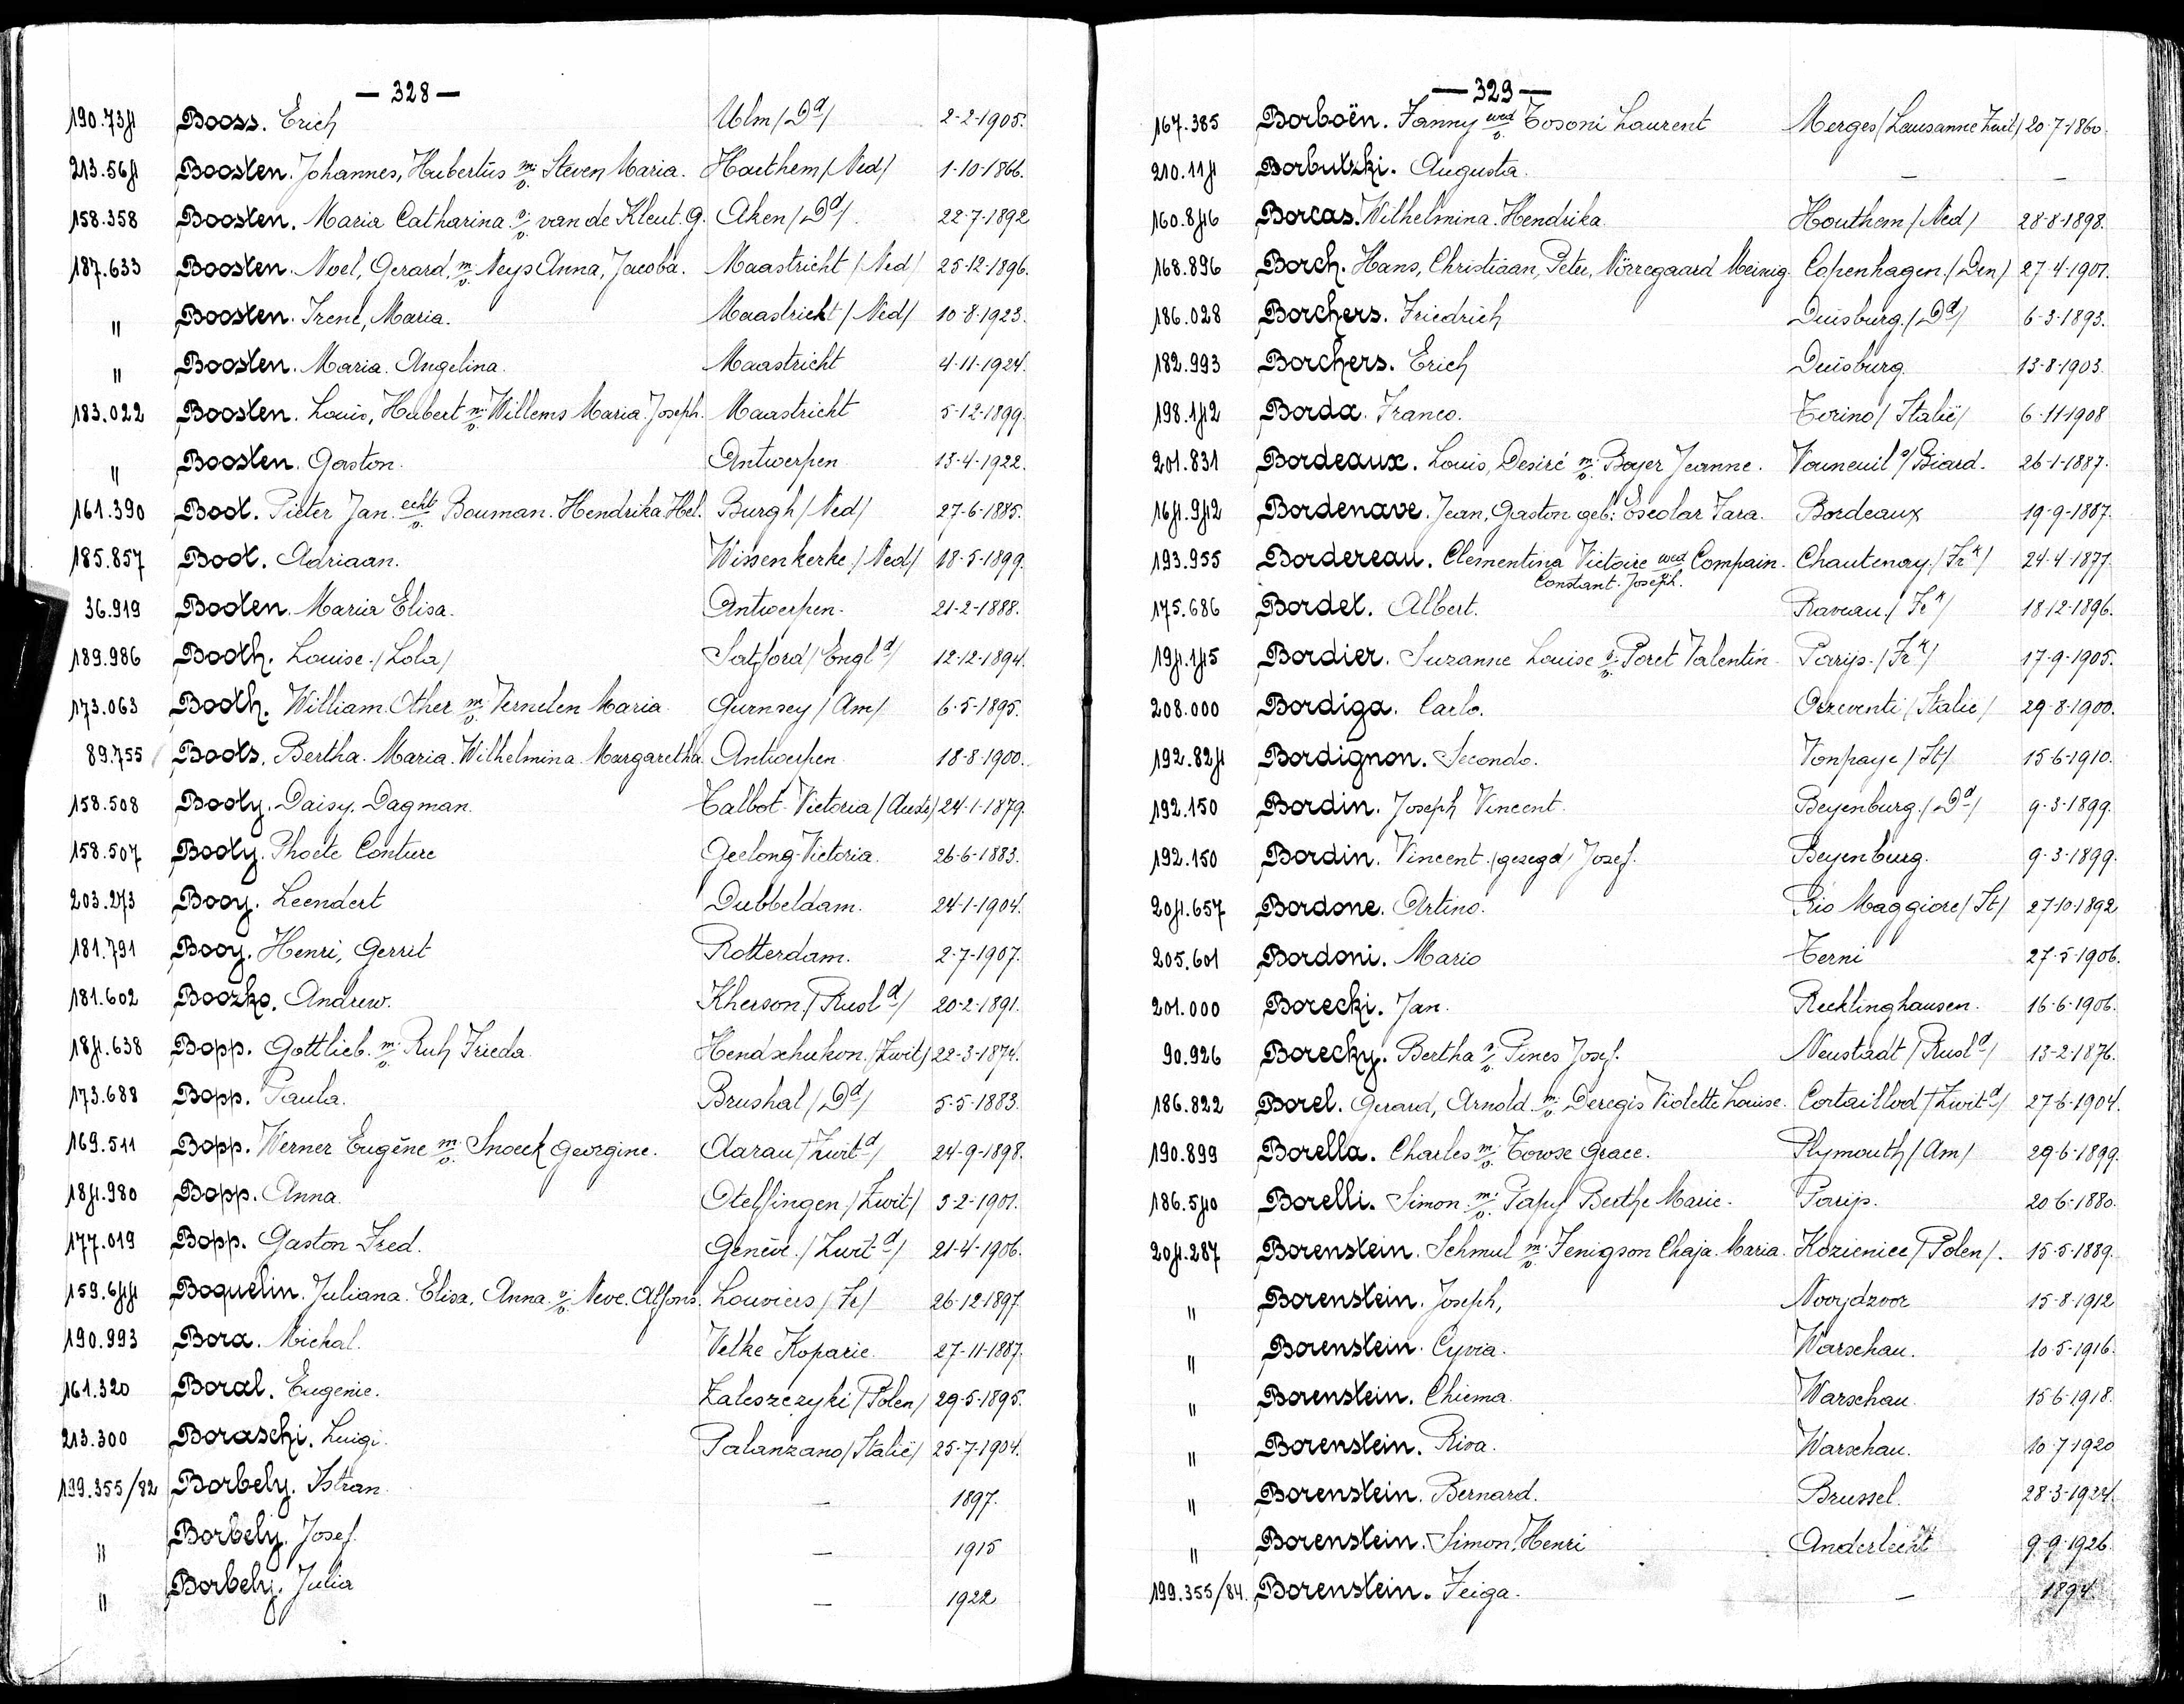 — 328 —
190.734 Booss. Erich Ulm /Dd/ 2-2-1905.
213.564 Boosten. Johannes, Hubertus m. v. Steven Maria. Houthem /Ned/ 1-10-1866.
158.358 Boosten. Maria Catharina e. v. van de Kleut. G. Aken /Dd/. 22-7-1892
187.633 Boosten. Noel, Gerard, m. v. Neys Anna, Jacoba. Maastricht /Ned/ 25-12-1896.
" Boosten. Irene, Maria. Maastricht /Ned/ 10-8-1923.
" Boosten. Maria. Angelina. Maastricht 4-11-1924.
183.022 Boosten. Louis, Hubert m. v. Willems Maria. Joseph. Maastricht 5-12-1899.
" Boosten. Gaston. Antwerpen 13-4-1922.
161.390 Boot. Pieter Jan. echt v. Bouman. Hendrika Hel. Burgh /Ned/ 27-6-1885.
185.857 Boot. Adriaan. Wissenkerke /Ned/ 18-5-1899.
36.919 Booten. Maria Elisa. Antwerpen. 21-2-1888.
189.986 Booth. Louise. /Lola/ Satford /Engld/ 12-12-1894.
173.063 Booth. William Other m. v. Vernelen Maria. Gurnsey /Am/ 6-5-1895.
89.755 Boots. Bertha. Maria. Wilhelmina. Margaretha. Antwerpen 18-8-1900.
158.508 Booty. Daisy. Dagman. Talbot-Victoria /Austr/ 24-1-1879.
158.507 Booty. Phoete Conture Geelong-Victoria. 26-6-1883.
203.273 Booy. Leendert Dubbeldam. 24-1-1904.
181.791 Booy. Henri, Gerrit Rotterdam. 2-7-1907.
181.602 Boozko. Andrew. Kherson /Rusld/ 20-2-1891.
184.638 Bopp. Gottlieb. m. v. Ruh Frieda. Hendschukon. /Zwit/ 22-3-1874.
173.688 Bopp. Paula. Brushal /Dd/ 5-5-1883.
169.511 Bopp. Werner Eugène m. v. Snoeck Georgine. Aarau /Zwitd/ 24-9-1898.
184.980 Bopp. Anna. Otelfingen /Zwit/ 3-2-1901.
177.019 Bopp. Gaston Fred. Genève. /Zwitd/ 21-4-1906.
159.644 Boquelin. Juliana. Elisa. Anna. e. v. Neve. Alfons. Louviers /Fr/ 26-12-1897.
190.993 Bora. Michal. Velke Koparie. 27-11-1887.
161.320 Boral. Eugenie. Zaleszezyki /Polen/ 29-5-1895.
213.300 Boraschi. Luigi. Palanzano /Italië/ 25-7-1904.
199.355/82 Borbely. Istran. — 1897.
" Borbely. Josef. — 1915
" Borbely. Julia — 1922
— 329 —
167.385 Borboën. Fanny wed v. Tosoni Laurent Merges /Lausanne Zwit/ 20-7-1860.
210.114 Borbutzki. Augusta. — —
160.846 Borcas. Wilhelmina. Hendrika. Houthem /Ned/ 28-8-1898.
168.896 Borch. Hans, Christiaan, Peter, Nörregaard Meinig. Copenhagen. /Den/ 27-4-1901.
186.028 Borchers. Friedrich Duisburg. /Dd/ 6-3-1893.
182.993 Borchers. Erich Duisburg. 13-8-1903.
198.142 Borda. Franco. Torino /Italië/ 6-11-1908
201.831 Bordeaux. Louis, Desiré m. v. Boyer Jeanne. Vouneuil s/Biard. 26-1-1887.
164.942 Bordenave. Jean, Gaston geb: Escolar Tara. Bordeaux 19-9-1887.
193.955 Bordereau. Clementina Victoire wed Compain. Chautenay /Frk/ 24-4-1877.
Constant. Joseph.
175.686 Bordet. Albert. Raveau. /Frk/ 18-12-1896.
194.145 Bordier. Suzanne Louise e. v. Poret Valentin. Parijs. /Frk/ 17-9-1905.
208.000 Bordiga. Carlo. Orzeventi /Italie/ 29-8-1900.
192.824 Bordignon. Secondo. Vonpaye /It/ 15-6-1910.
192.150 Bordin. Joseph Vincent. Beyenburg. /Dd/ 9-3-1899.
192.150 Bordin. Vincent. /gezegd/ Josef. Beyenburg. 9-3-1899.
204.657 Bordone. Artino. Rio Maggiore /It/ 27-10-1892
205.601 Bordoni. Mario Terni 27-5-1906.
201.000 Borecki. Jan. Recklinghausen. 16-6-1906.
90.926 Borecky. Bertha e. v. Pines Josef. Neustadt /Rusld/ 13-2-1876.
186.822 Borel. Gerard, Arnold m. v. Deregis Violette Louise. Cortaillod /Zwitd/ 27-6-1904.
190.899 Borella. Charles m. v. Towse Grace. Plymouth /Am/ 29-6-1899.
186.540 Borelli. Simon. m. v. Papy Berthe Marie. Parijs. 20-6-1880.
204.287 Borenstein. Schmul m. v. Fenigson Chaja. Maria. Kozienice /Polen/. 15-5-1889.
" Borenstein. Joseph, Nooydzoor 15-8-1912
" Borenstein. Cyvia. Warschau. 10-5-1916.
" Borenstein. Chiema. Warschau. 15-6-1918.
" Borenstein. Riva. Warschau. 10-7-1920
" Borenstein. Bernard. Brussel. 28-3-1924.
" Borenstein. Simon. Henri Anderlecht 9-9-1926.
199.355/84. Borenstein. Feiga. — 1894.